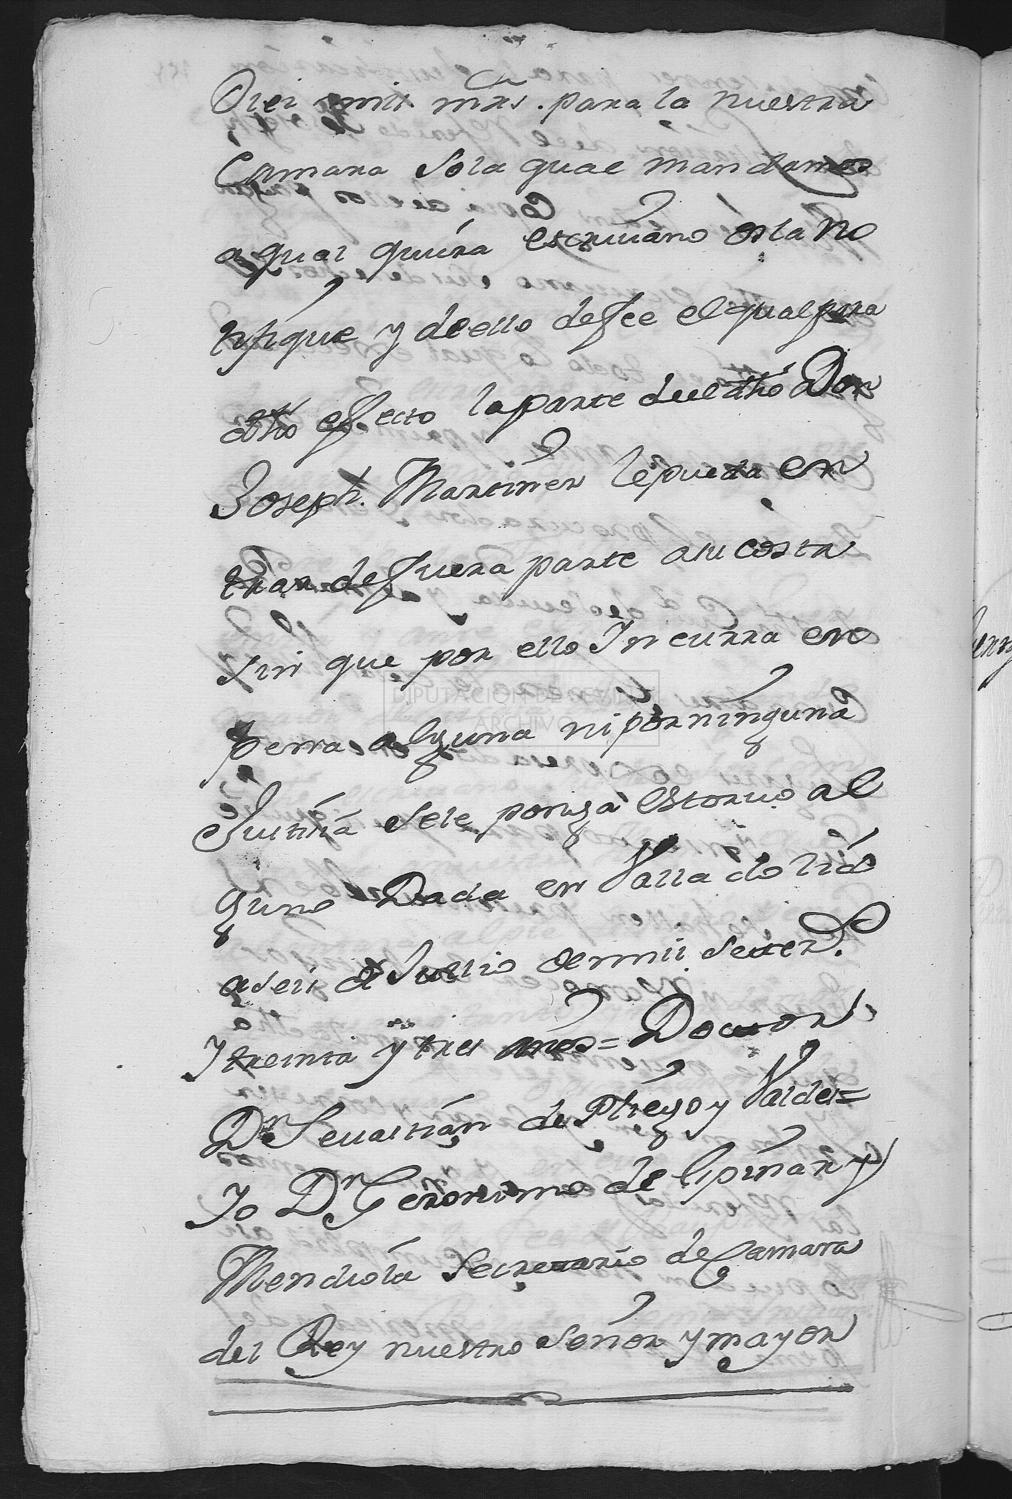 Diez mil mrs. para la nuestra
Camara so la qual mandamos
a qual quiera escriuano os la no
tifique y de ello de fee el qual para
dho effecto la parte de el dho Don
Joseph. Martinez le pueda en
trar de fuera parte a su costa
sin que por ello Incurra en
pena alguna ni por ninguna
Justizia se le ponga estoruo al
guno Dada en Valladolid
a seis de Jullio de mil setez.s
Y treinta y tres años = Doctor
Dn Seuastián de Priego y Valdes =
Yo Dn Geronimo de Espinar y
Mendiola Secretario de Camara
del Rey nuestro Señor y mayor
DIPUTACIÓN DE
ARCHIVO